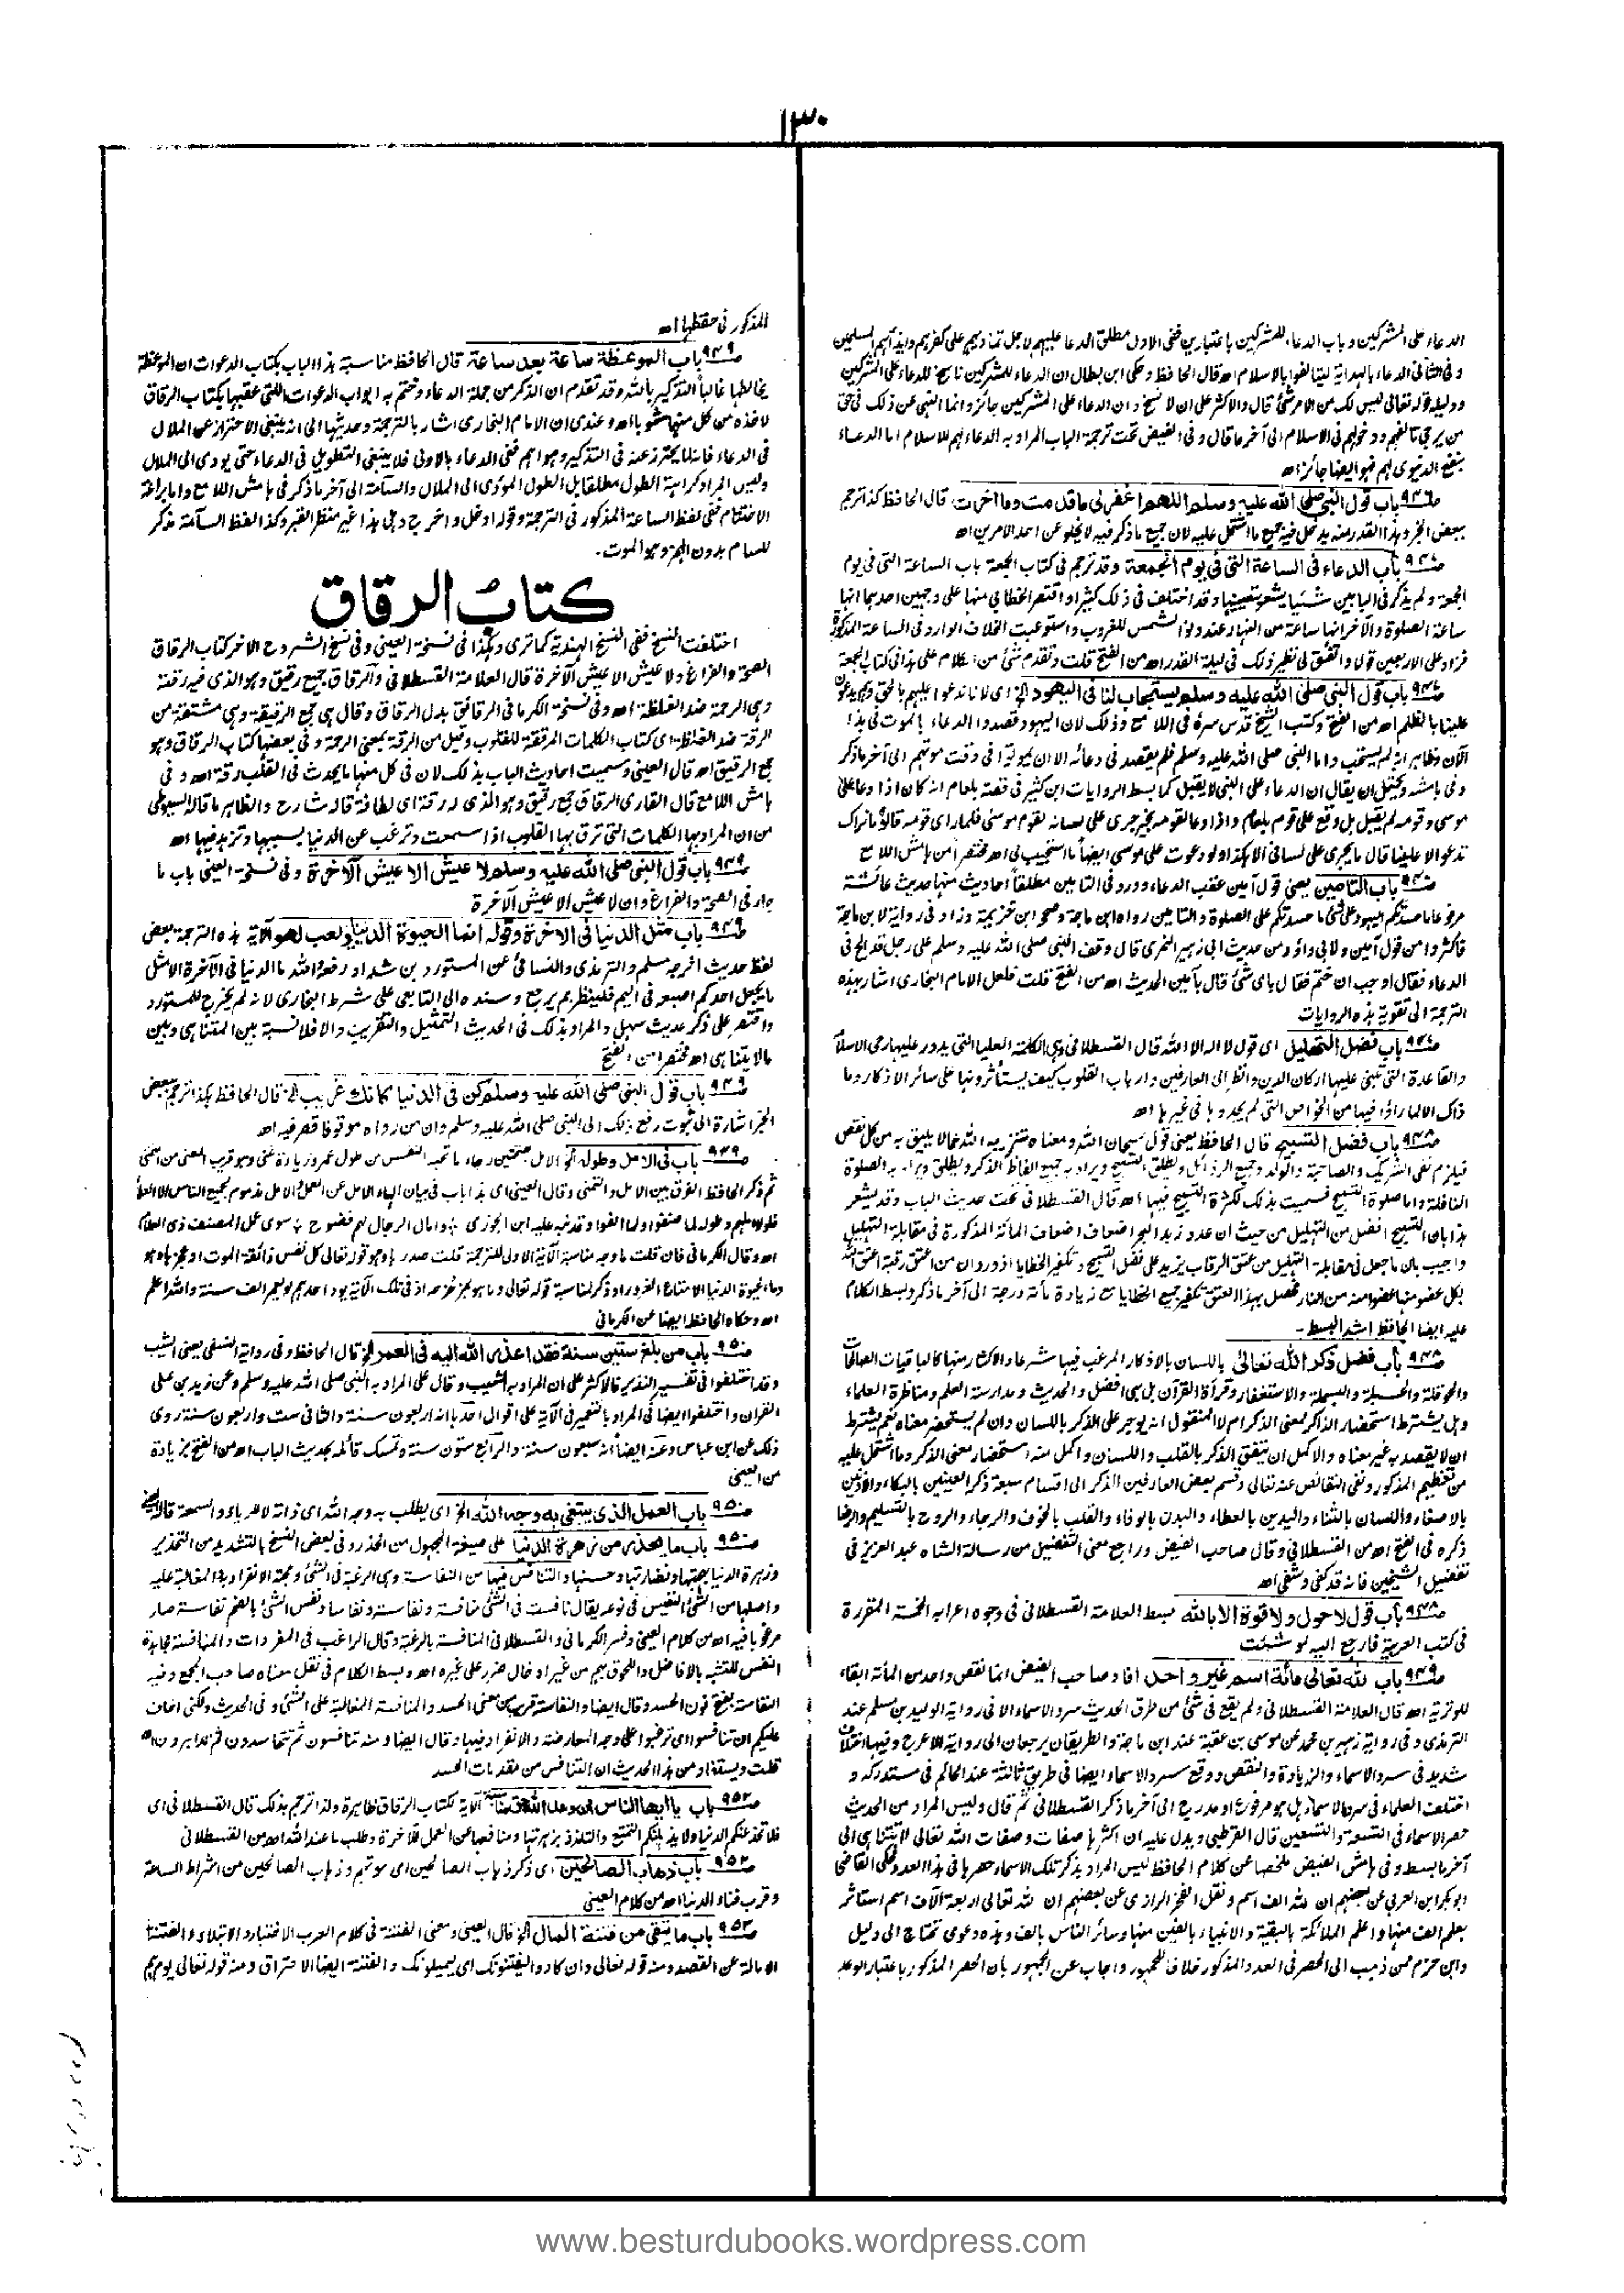 ١٣٠
الدعاء على المشركين وباب الدعاء للمشركين باعتبارين ففى الاول مطلق الدعا عليهم لاجل تماديهم على كفرهم وايذائهم المسلمين
وفى الثانى الدعاء بالهداية ليتالفوا بالاسلام اھ قال الحافظ وحكى ابن بطال ان الدعاء للمشركين ناسخ للدعاء على المشركين
ودليله قوله تعالى ليس لك من الامر شئ قال والاكثر على ان لا نسخ وان الدعاء على المشركين جائز وانما النهى عن ذلك فى حق
من يرجى تالفهم ودخولهم فى الاسلام الى آخر ما قال وفى الفيض تحت ترجمة الباب المراد به الدعاء لهم للاسلام اما الدعاء
بنفع الدنيوى لهم فهو ايضا جائز اھ
باب قول النبى صلى الله عليه وسلم اللهم اغفر لى ما قدمت وما اخرت قال الحافظ كذا ترجم
ببعض الخبر وهذا القدر منه يدخل فيه جميع ما اشتمل عليه لان جميع ما ذكر فيه لا يخلو عن احد الامرين اھ
باب الدعاء فى الساعة التى فى يوم الجمعة وقد ترجم فى كتاب الجمعة باب الساعة التى فى يوم
الجمعة ولم يذكر فى البابين شيئا يشعر بتعيينها وقد اختلف فى ذلك كثيرا واقتصر الخطابى منها على وجهين احدهما انها
ساعة الصلوة والآخر انها ساعة من النهار عند دنو الشمس للغروب واستوعبت الخلاف الوارد فى الساعة المذكورة
فزاد على الاربعين قولا واتفق لى نظير ذلك فى ليلة القدر اھ من الفتح قلت وتقدم شئ من الكلام على هذا فى كتاب الجمعة
باب قول النبى صلى الله عليه وسلم يستجاب لنا فى اليهود الخ اى لانا ندعوا عليهم بالحق وهم يدعون
علينا بالظلم اھ من الفتح وكتب الشيخ قدس سره فى اللامع وذلك لان اليهود قصدوا الدعاء بالموت فى هذا
الآن وظاهر انه لم يستجب واما النبى صلى الله عليه وسلم فلم يقصد فى دعائه الا ان يموتوا فى وقت موتهم الى آخر ما ذكر
وفى هامشه ويحتمل ان يقال ان الدعاء على النبى لا يقبل كما بسط الروايات ابن كثير فى قصة بلعام انه كان اذا دعا على
موسى وقومه لم يقبل بل وقع على قوم بلعام واذا دعا لقومه بخير جرى على لسانه لقوم موسى فلما رأى قومه قالوا ما نراك
تدعوا الا علينا قال ما يجرى على لسانى الا هكذا ولو دعوت على موسى ايضاً ما استجيب لى اھ مختصرا من هامش اللامع
باب التامين يعنى قول آمين عقب الدعاء وورد فى التامين مطلقاً احاديث منها حديث عائشة
مرفوعا ما حسدتكم اليهود على شئ ما حسدتكم على الصلوة والتامين رواه ابن ماجة وصححه ابن خزيمة وزاد فى رواية لابن ماجة
فاكثروا من قول آمين ولابى داؤد من حديث ابى زهير النمرى قال وقف النبى صلى الله عليه وسلم على رجل قد الح فى
الدعاء فقال اوجب ان ختم فقال باى شئ قال بآمين الحديث اھ من الفتح قلت فلعل الامام البخارى اشار بهذه
الترجمة الى تقوية هذه الروايات
باب فضل التهليل اى قول لا اله الا الله قال القسطلانى وهى الكلمة العليا التى يدور عليها رحى الاسلام
والقاعدة التى تبنى عليها اركان الدين وانظر الى العارفين وارباب القلوب كيف يستأثرونها على سائر الاذكار وما
ذاك الا لما رأوا فيها من الخواص التى لم يجدوها فى غيرها اھ
باب فضل التسبيح قال الحافظ يعنى قول سبحان الله ومعناه تنزيه الله عما لا يليق به من كل نقص
فيلزم نفى الشريك والصاحبة والولد وجميع الرذائل ويطلق التسبيح ويراد به جميع الفاظ الذكر ويطلق ويراد به الصلوة
النافلة واما صلوة التسبيح فسميت بذلك لكثرة التسبيح فيها اھ قال القسطلانى تحت حديث الباب وقد يشعر
هذا بان التسبيح افضل من التهليل من حيث ان عدد زبد البحر اضعاف اضعاف المائة المذكورة فى مقابلة التهليل
واجيب بان ما جعل فى مقابلة التهليل من عتق الرقاب يزيد على فضل التسبيح وتكفير الخطايا اذ ورد ان من اعتق رقبة اعتق الله
بكل عضو منها عضوا منه من النار فحصل بهذا العتق تكفير جميع الخطايا مع زيادة مأة درجة الى آخر ما ذكر وبسط الكلام
عليه ايضا الحافظ اشد البسط -
باب فضل ذكر الله تعالى باللسان بالاذكار المرغب فيها شرعا والاكثار منها كالباقيات الصالحات
والحوقلة والحسبلة والبسملة والاستغفار وقرأة القرآن بل هى افضل والحديث ومدارسة العلم ومناظرة العلماء
وهل يشترط استحضار الذاكر لمعنى الذكر ام لا المنقول انه يوجر على الذكر باللسان وان لم يستحضر معناه نعم يشترط
ان لا يقصد به غير معناه والاكمل ان يتفق الذكر بالقلب واللسان واكمل منه استحضار معنى الذكر وما اشتمل عليه
من تعظيم المذكور ونفى النقائص عنه تعالى وقسم بعض العارفين الذكر الى اقسام سبعة ذكر العينين بالبكاء والاذنين
بالاصغاء واللسان بالثناء واليدين بالعطاء والبدن بالوفاء والقلب بالخوف والرجاء والروح بالتسليم والرضا
ذكره فى الفتح اھ من القسطلانى وقال صاحب الفيض وراجع معنى التفضيل من رسالة الشاه عبد العزيز فى
تفضيل الشيخين فانه قد كفى وشفى اھ
باب قول لا حول ولا قوة الا بالله بسط العلامة القسطلانى فى وجوه اعرابه الخمسة المقررة
فى كتب العربية فارجع اليه لو شئت
باب لله تعالى مائة اسم غير واحد افاد صاحب الفيض انما نقص واحد من المأة ابقاء
للوترية اھ قال العلامة القسطلانى ولم يقع فى شئ من طرق الحديث سرد الاسماء الا فى رواية الوليد بن مسلم عند
الترمذى وفى رواية زهير بن محمد عن موسى بن عقبة عند ابن ماجة والطريقان يرجعان الى رواية الاعرج وفيها اختلاف
شديد فى سرد الاسماء والزيادة والنقص ووقع سرد الاسماء ايضا فى طريق ثالثة عند الحاكم فى مستدركه و
اختلف العلماء فى سرد الاسماء هل هو مرفوع او مدرج الى آخر ما ذكر القسطلانى ثم قال وليس المراد من الحديث
حصر الاسماء فى التسعة والتسعين قال القرطبى ويدل عليه ان اكثرها صفات وصفات الله تعالى لا تتناهى الى
آخر ما بسط وفى هامش الفيض ملخصا عن كلام الحافظ ليس المراد بذكر تلك الاسماء حصرها فى هذا العدد وحكى القاضى
ابو بكر ابن العربى عن بعضهم ان لله الف اسم ونقل الفخر الرازى عن بعضهم ان لله تعالى اربعة آلاف اسم استاثر
بعلم الف منها واعلم الملائكة بالبقية والانبياء بالفين منها وسائر الناس بالف وهذه دعوى تحتاج الى دليل
وابن حزم ممن ذهب الى الحصر فى العدد المذكور خلافا للجمهور واجاب عن الجمهور بان الحصر المذكور باعتبار الوعد
المذكور فى حفظها اھ
باب الموعظة ساعة بعد ساعة قال الحافظ مناسبة هذا الباب بكتاب الدعوات ان الموعظة
يخالطها غالباً التذكير بالله وقد تقدم ان الذكر من جملة الدعاء وختم به ابواب الدعوات اللتى عقبها بكتاب الرقاق
لاخذه من كل منهما شوبا اھ وعندى ان الامام البخارى اشار بالترجمة وحديثها الى انه ينبغى الاحتراز عن الملال
فى الدعاء فانه لما يحترز عنه فى التذكير وهو اهم ففى الدعاء بالاولى فلا ينبغى التطويل فى الدعاء حتى يودى الى الملال
وليس المراد كراهية الطول مطلقا بل الطول المؤدى الى الملال والسآمة الى آخر ما ذكر فى هامش اللامع واما براعة
الاختتام ففى لفظ الساعة المذكور فى الترجمة وقوله ادخل واخرج دهل هذا غير منظر القبر وكذا لفظ السآمة مذكر
للسام بدون الهمز وهو الموت -
كتاب الرقاق
اختلفت النسخ ففى النسخ الهندية كما ترى وهكذا فى نسخة العينى وفى نسخ الشروح الاخر كتاب الرقاق
الصحة والفراغ ولا عيش الا عيش الآخرة قال العلامة القسطلانى والرقاق جمع رقيق وهو الذى فيه رقة
وهى الرحمة ضد الغلظة اھ وفى نسخة الكرمانى الرقائق بدل الرقاق وقال هى جمع الرقيقة وهى مشتقة من
الرقة ضد الغلظ اى كتاب الكلمات المرققة للقلوب وقيل من الرقة بمعنى الرحمة وفى بعضها كتاب الرقاق وهو
جمع الرقيق اھ قال العينى وسميت احاديث الباب بذلك لان فى كل منها ما يحدث فى القلب رقة اھ وفى
هامش اللامع قال القارى الرقاق جمع رقيق وهو الذى له رقة اى لطافة قاله شارح والظاهر ما قاله السيوطى
من ان المراد بها الكلمات التى ترق بها القلوب اذا سمعت وترغب عن الدنيا بسببها وتزهد فيها اھ
باب قول النبى صلى الله عليه وسلم لا عيش الا عيش الآخرة وفى نسخة العينى باب ما
جاء فى الصحة والفراغ وان لا عيش الا عيش الآخرة
باب مثل الدنيا فى الاخرة وقوله انما الحيوة الدنيا لعب لهو الآية هذه الترجمة بعض
لفظ حديث اخرجه مسلم والترمذى والنسائى عن المستورد بن شداد رفعه والله ما الدنيا فى الآخرة الا مثل
ما يجعل احدكم اصبعه فى اليم فلينظر بم يرجع وسنده الى التابعى على شرط البخارى لانه لم يخرج للمستورد
واقتصر على ذكر حديث سهل والمراد بذلك فى الحديث التمثيل والتقريب والا فلا نسبة بين المتناهى وبين
ما لا يتناهى اھ مختصرا من الفتح
باب قول النبى صلى الله عليه وسلم كن فى الدنيا كانك غريب الخ قال الحافظ هكذا ترجم ببعض
الخبر اشارة الى ثبوت رفع ذلك الى النبى صلى الله عليه وسلم وان من رواه موقوفا قصر فيه اھ
باب فى الامل وطوله الخ الامل بفتحتين رجاء ما تحبه النفس من طول عمر وزيادة غنى وهو قريب المعنى من التمنى
ثم ذكر الحافظ الفرق بين الامل والتمنى وقال العينى اى هذا باب فى بيان الهاء الامل عن العمل والامل مذموم لجميع الناس الا العلماء
فلولا املهم وطوله لما صنفوا ولما الفوا وقد نبه عليه ابن الجوزى وآمال الرجال لهم فضوح سوى امل المصنف ذى العلوم
اھ وقال الكرمانى فان قلت ما وجه مناسبة الآية الاولى للترجمة قلت صدرها وهو قوله تعالى كل نفس ذائقة الموت او عجزها وهو
وما الحيوة الدنيا الا متاع الغرور او ذكر لمناسبة قوله تعالى وما هو بمزحزحه اذ فى تلك الآية يود احدهم لو يعمر الف سنة والله اعلم
اھ وحكاه الحافظ ايضا عن الكرمانى
باب من بلغ ستين سنة فقد اعذر الله اليه فى العمر الخ قال الحافظ وفى رواية النسفى يعنى الشيب
وقد اختلفوا فى تفسير النذير فالاكثر على ان المراد به الشيب وقال على المراد به النبى صلى الله عليه وسلم وعن زيد بن على
القران واختلفوا ايضا فى المراد بالتعمير فى الآية على اقوال احدها انه اربعون سنة والثانى ست واربعون سنة روى
ذلك عن ابن عباس وعنه ايضاً انه سبعون سنة والرابع ستون سنة وتمسك قائله بحديث الباب اھ من الفتح بزيادة
من العينى
باب العمل الذى يبتغى به وجه الله الخ اى يطلب به وجه الله اى ذاته لا للرياء والسمعة قاله العينى
باب ما يحذر من زهرة الدنيا على صيغة المجهول من الحذر وفى بعض النسخ بالتشديد من التحذير
وزهرة الدنيا بهجتها ونضارتها وحسنها والتنافس فيها من النفاسة وهى الرغبة فى الشئ ومحبة الانفراد به والمغالبة عليه
واصلها من الشئ النفيس فى نوعه يقال نافست فى الشئ منافسة ونفاسة ونفاسا ونفس الشئ بالضم نفاسة صار
مرغوبا فيه اھ من كلام العينى وفسر الكرمانى والقسطلانى المنافسة بالرغبة وقال الراغب فى المفردات والمنافسة مجاهدة
النفس للتشبه بالافاضل واللحوق بهم من غير ادخال ضرر على غيره اھ وبسط الكلام فى نقل معناه صاحب المجمع وفيه
النفاسة بفتح نون الحسد وقال ايضا والنفاسة قريب من معنى الحسد والمنافسة المغالبة على الشئ وفى الحديث ولكنى اخاف
عليكم ان تنافسوا اى ترغبوا على وجه المعارضة والانفراد فيها وقال ايضا ومنه تنافسون ثم تتحاسدون ثم تدابرون اھ
قلت ويستفاد من هذا الحديث ان التنافس من مقدمات الحسد
باب يا ايها الناس ان وعد الله حق الآية مناسبة الآية لكتاب الرقاق ظاهرة ولذا ترجم بذلك قال القسطلانى اى
فلا تخدعنكم الدنيا ولا يذهلنكم التمتع والتلذذ بزهرتها ومنافعها عن العمل للآخرة وطلب ما عند الله اھ من القسطلانى
باب ذهاب الصالحين اى ذكر ذهاب الصالحين اى موتهم وذهاب الصالحين من اشراط الساعة
وقرب فناء الدنيا اھ من كلام العينى
باب ما يتقى من فتنة المال الخ قال العينى ومعنى الفتنة فى كلام العرب الاختبار والابتلاء والفتنة
الامالة عن القصد ومنه قوله تعالى وان كادوا ليفتنونك اى ليميلونك والفتنة ايضا الاحتراق ومنه قوله تعالى يوم هم
www.besturdubooks.wordpress.com